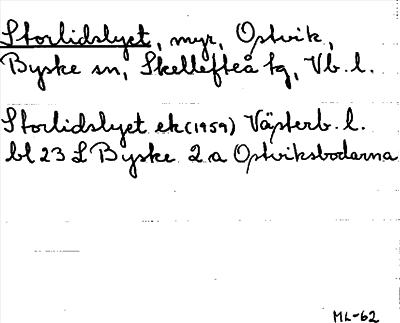 Storlidslyet, myr, Ostvik,
Byske sn, Skellefteå tg, Vb. l.
Storlidslyet ek (1959) Västerb. l.
bl 23 L Byske 2 a Ostviksbodarna
ML-62